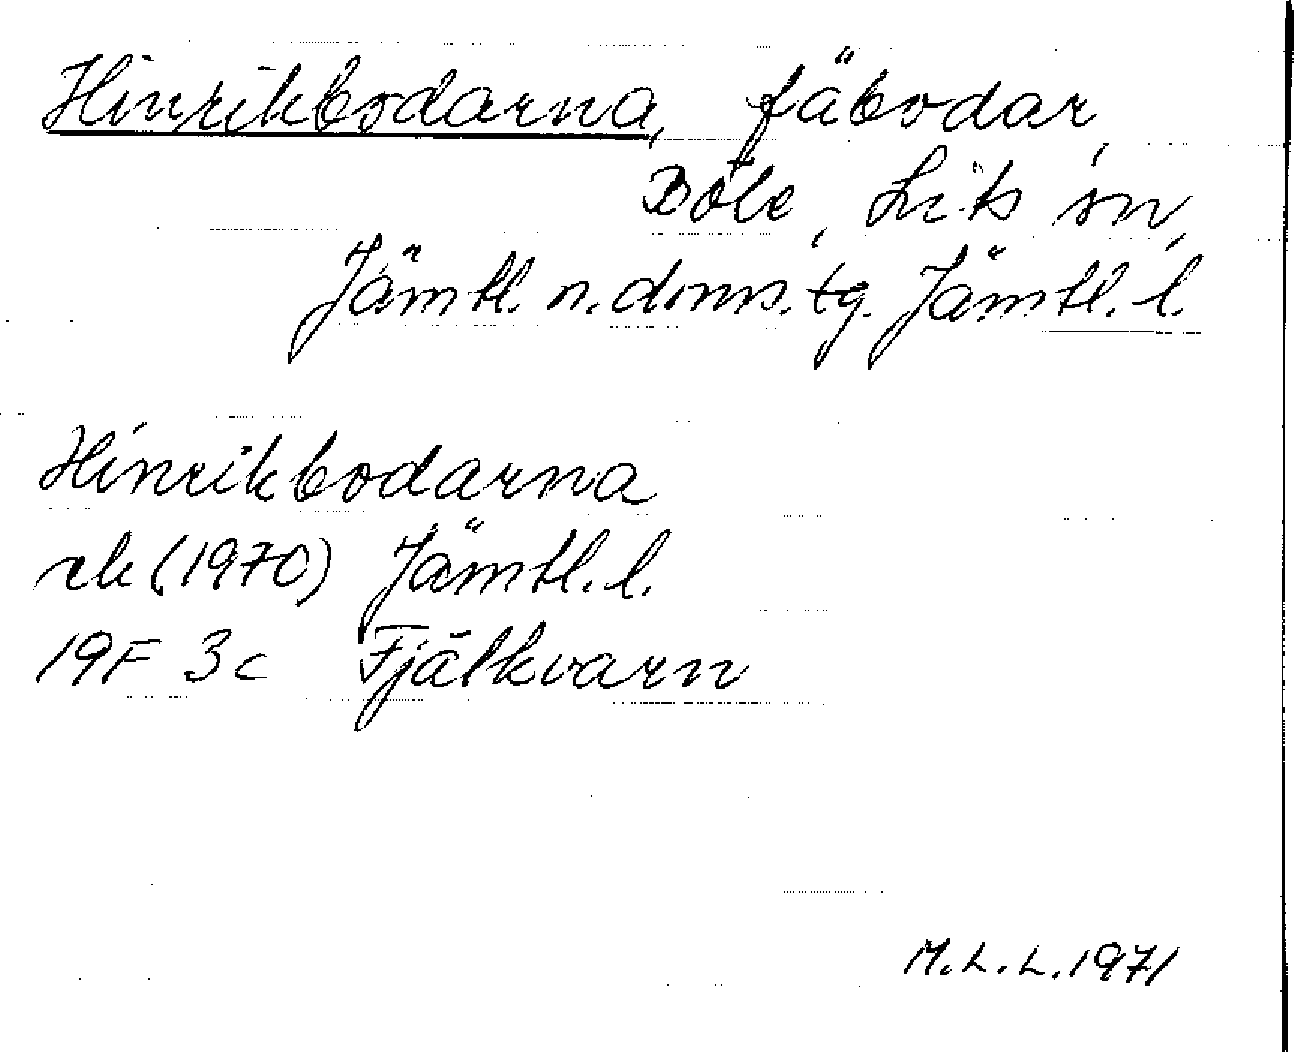 Hinrikbodarna, fäbodar,
Böle, Lits sn,
Jämtl. n. doms. tg. Jämtl. l.
Hinrikbodarna
rk (1970) Jämtl. l.
19F 3c Fjälkvarn
M.L.L. 1971